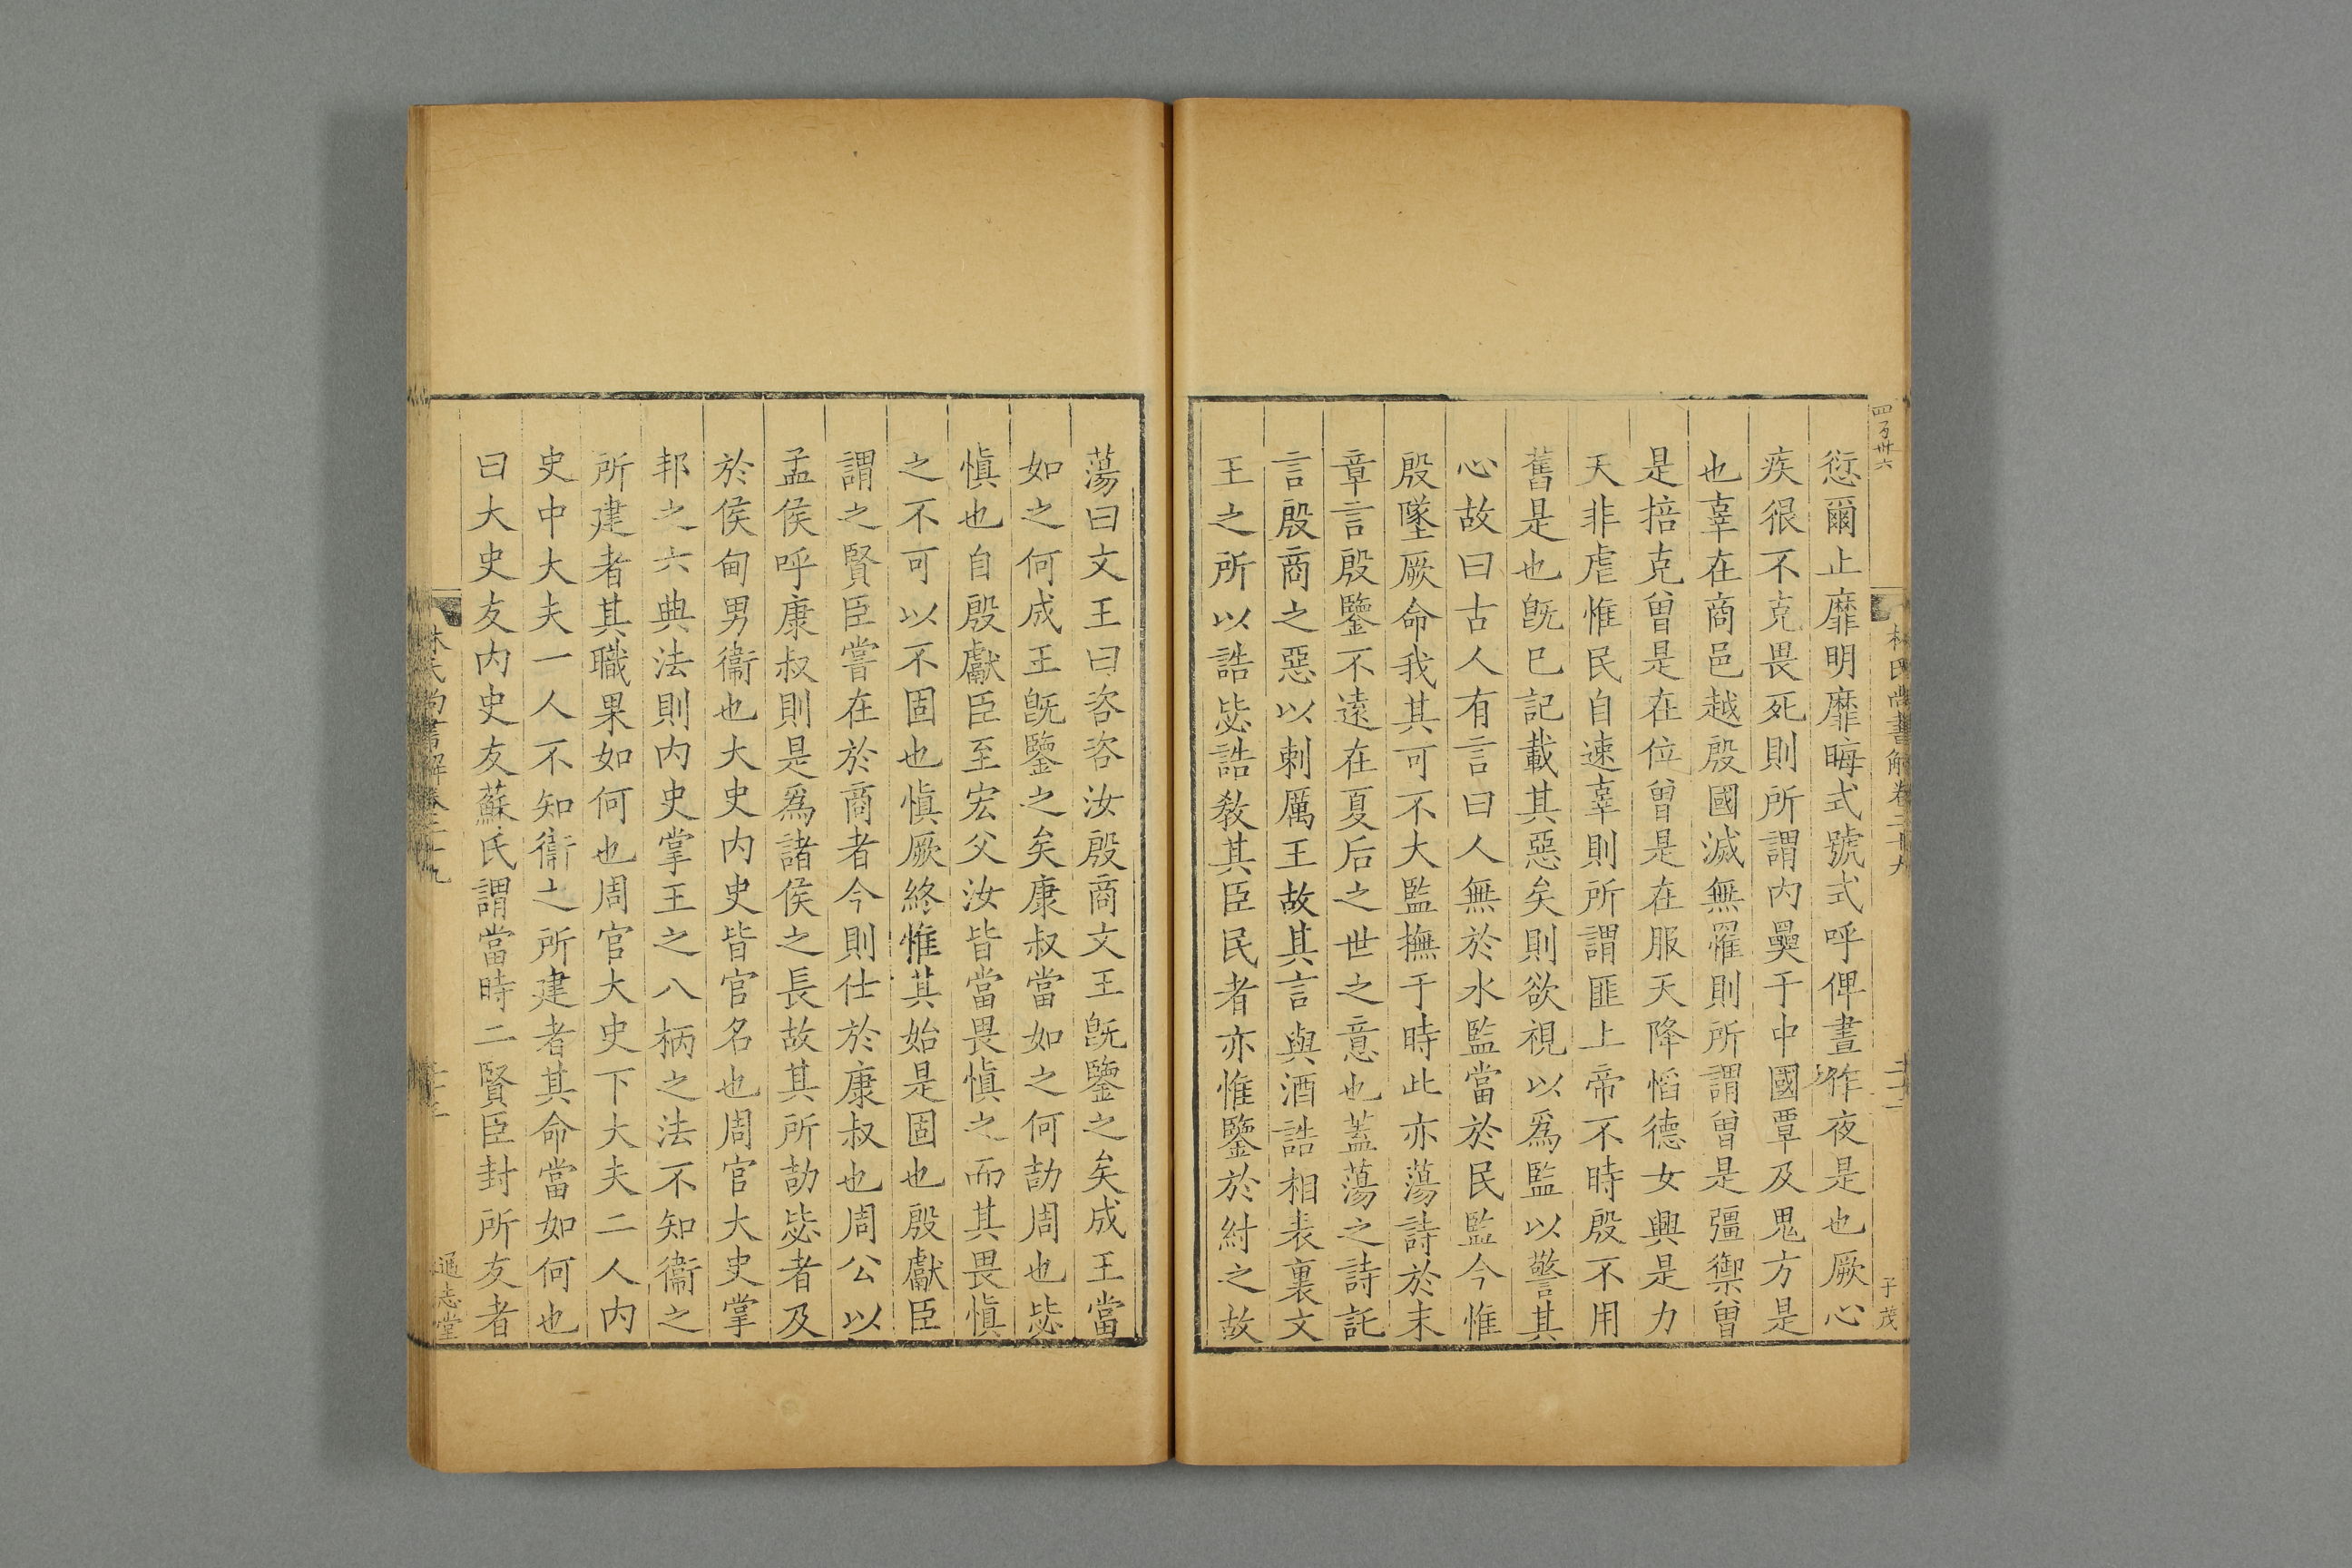 四百卅六
林氏尚書解卷二十九
二十二
子茂
愆爾止靡明靡晦式號式呼俾晝作夜是也厥心
疾很不克畏死則所謂内奰于中國覃及鬼方是
也辜在商邑越殷國滅無罹則所謂曾是彊禦曾
是掊克曾是在位曾是在服天降慆德女興是力
天非虐惟民自速辜則所謂匪上帝不時殷不用
舊是也旣已記載其惡矣則欲視以爲監以警其
心故曰古人有言曰人無於水監當於民監今惟
殷墜厥命我其可不大監撫于時此亦蕩詩於末
章言殷鑒不遠在夏后之世之意也蓋蕩之詩託
言殷商之惡以刺厲王故其言與酒誥相表裏文
王之所以誥毖誥敎其臣民者亦惟鑒於紂之故
蕩曰文王曰咨咨汝殷商文王旣鑒之矣成王當
如之何成王旣鑒之矣康叔當如之何劼周也毖
愼也自殷獻臣至宏父汝皆當畏愼之而其畏愼
之不可以不固也愼厥終惟其始是固也殷獻臣
謂之賢臣嘗在於商者今則仕於康叔也周公以
孟侯呼康叔則是爲諸侯之長故其所劼毖者及
於侯甸男衞也大史内史皆官名也周官大史掌
邦之六典法則内史掌王之八柄之法不知衞之
所建者其職果如何也周官大史下大夫二人内
史中大夫一人不知衞之所建者其命當如何也
曰大史友内史友蘇氏謂當時二賢臣封所友者
林氏尚書解卷二十九
通志堂